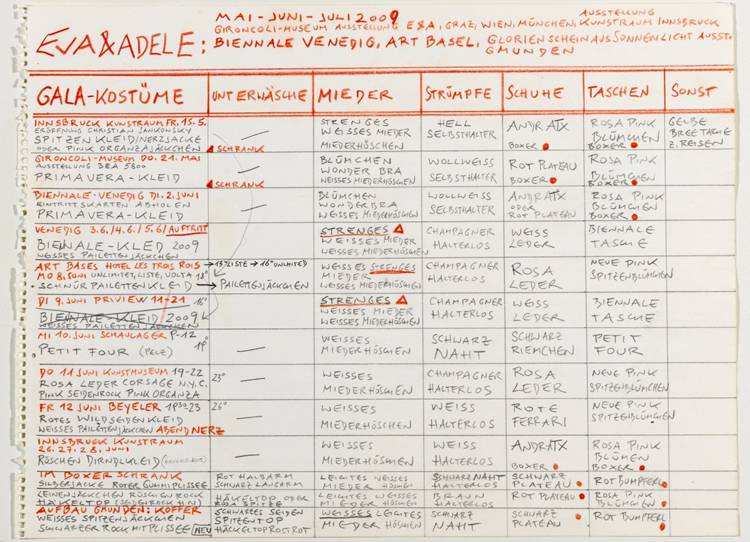 MAI-JUNI-JULI 2009 AUSSTELLUNG
GIRONCOLI-MUSEUM AUSSTELLUNG E&A, GRAZ, WIEN, MÜNCHEN, KUNSTRAUM INNSBRUCK
EVA&ADELE: BIENNALE VENEDIG, ART BASEL, GLORIENSCHEIN AUS SONNENLICHT AUSST.
GMUNDEN
GALA-KOSTÜME UNTERWÄSCHE MIEDER STRÜMPFE SCHUHE TASCHEN SONST
INNSBRUCK KUNSTRAUM FR. 15.5. — STRENGES HELL ANDRATX ROSA PINK GELBE
ERÖFFNUNG CHRISTIAN JANKOWSKY WEISSES MIEDER SELBSTHALTER BLÜMCHEN
SPITZEN KLEID/NERZJACKE
ODER PINK ORGANZAJÄCKCHEN SCHRANK MIEDERHÖSCHEN BOXER BOXER Z. REISEN
GIRONCOLI-MUSEUM DO. 21. MAI BLÜMCHEN WOLLWEISS ROT PLATEAU ROSA PINK
AUSSTELLUNG — WONDER BRA SELBSTHALTER BOXER BLÜMCHEN
PRIMAVERA-KLEID SCHRANK WEISSES MIEDERHÖSCHEN BOXER
BIENNALE-VENEDIG DI. 2. JUNI BLÜMCHEN WOLLWEISS ANDRATX ROSA PINK
EINTRITTSKARTEN ABHOLEN — WONDERBRA SELBSTHALTER ODER BLÜMCHEN
PRIMAVERA-KLEID WEISSES MIEDERHÖSCHEN ROT PLATEAU BOXER
VENEDIG 3.6/4.6/5.6/AUFTRITT STRENGES CHAMPAGNER WEISS BIENNALE
BIENNALE-KLEID 2009 WEISSES MIEDER HALTERLOS LEDER TASCHE
WEISSES PAILETTENJÄCKCHEN WEISSES MIEDERHÖSCHEN
ART BASEL HOTEL LES TROIS ROIS 15°LISTE → 16° UNLIMITED WEISSES STRENGES CHAMPAGNER ROSA NEUE PINK
MO 8. JUNI UNLIMITED, LISTE, VOLTA 18° MIEDER HALTERLOS LEDER SPITZENBLÜMCHEN
SCHNÜRPAILETTENKLEID → PAILETTENJÄCKCHEN WEISSES MIEDERHÖSCHEN
DI 9. JUNI PRIVIEW 11-21 16° STRENGES CHAMPAGNER WEISS BIENNALE
BIENNALE-KLEID 2009 WEISSES MIEDER HALTERLOS LEDER TASCHE
WEISSES PAILETTEN JÄCKCHEN WEISSES MIEDERHÖSCHEN
MI 10. JUNI SCHAULAGER 19° — WEISSES SCHWARZ SCHWARZ PETIT
PETIT FOUR (PELZ) MIEDERHÖSCHEN NAHT RIEMCHEN FOUR
DO 11 JUNI KUNSTMUSEUM 19-22 23° WEISSES CHAMPAGNER ROSA NEUE PINK
ROSA LEDER CORSAGE N.Y.C. — MIEDERHÖSCHEN HALTERLOS LEDER SPITZENBLÜMCHEN
PINK SEIDENROCK PINK ORGANZA
FR 12 JUNI BEYELER 19³⁰-23 26° WEISSES WEISS ROTE NEUE PINK
ROTES WILDSEIDENKLEID — MIEDERHÖSCHEN HALTERLOS FERRARI SPITZENBLÜMCHEN
WEISSES PAILETTENJÄCKCHEN ABEND NERZ
INNSBRUCK KUNSTRAUM WEISSES WEISS ANDRATX ROSA PINK
26. 27. 28. JUNI — MIEDERHÖSCHEN HALTERLOS BLÜMCHEN
RÖSCHEN DIRNDLKLEID BOXER BOXER
IM BOXER SCHRANK ROT HALBARM LEICHTES WEISSES SCHWARZ NAHT SCHWARZ ROT BUMPFERL
SILBERJACKE ROTER GUMMIPLISSEE SCHWARZ LANGARM MIEDER HÖSCHEN HALTERLOS PLATEAU
LEINENJÄCKCHEN RÖSCHEN ROCK HÄKELTOP ODER LEICHTES WEISSES BRAUN ROT PLATEAU ROSA PINK
HÄKELTOP ROSA SPITZE MIEDER HÖSCHEN HALTERLOS BLÜMCHEN
AUFBAU GMUNDEN: KOFFER SCHWARZES SEIDEN WEISSES LEICHTES SCHWARZ SCHWARZ ROT BUMPFERL
WEISSES SPITZENJÄCKCHEN SPITZENTOP MIEDER HÖSCHEN NAHT PLATEAU
SCHWARZER ROCK MIT PLISSEE NEU HÄKELTOP ROSTROT